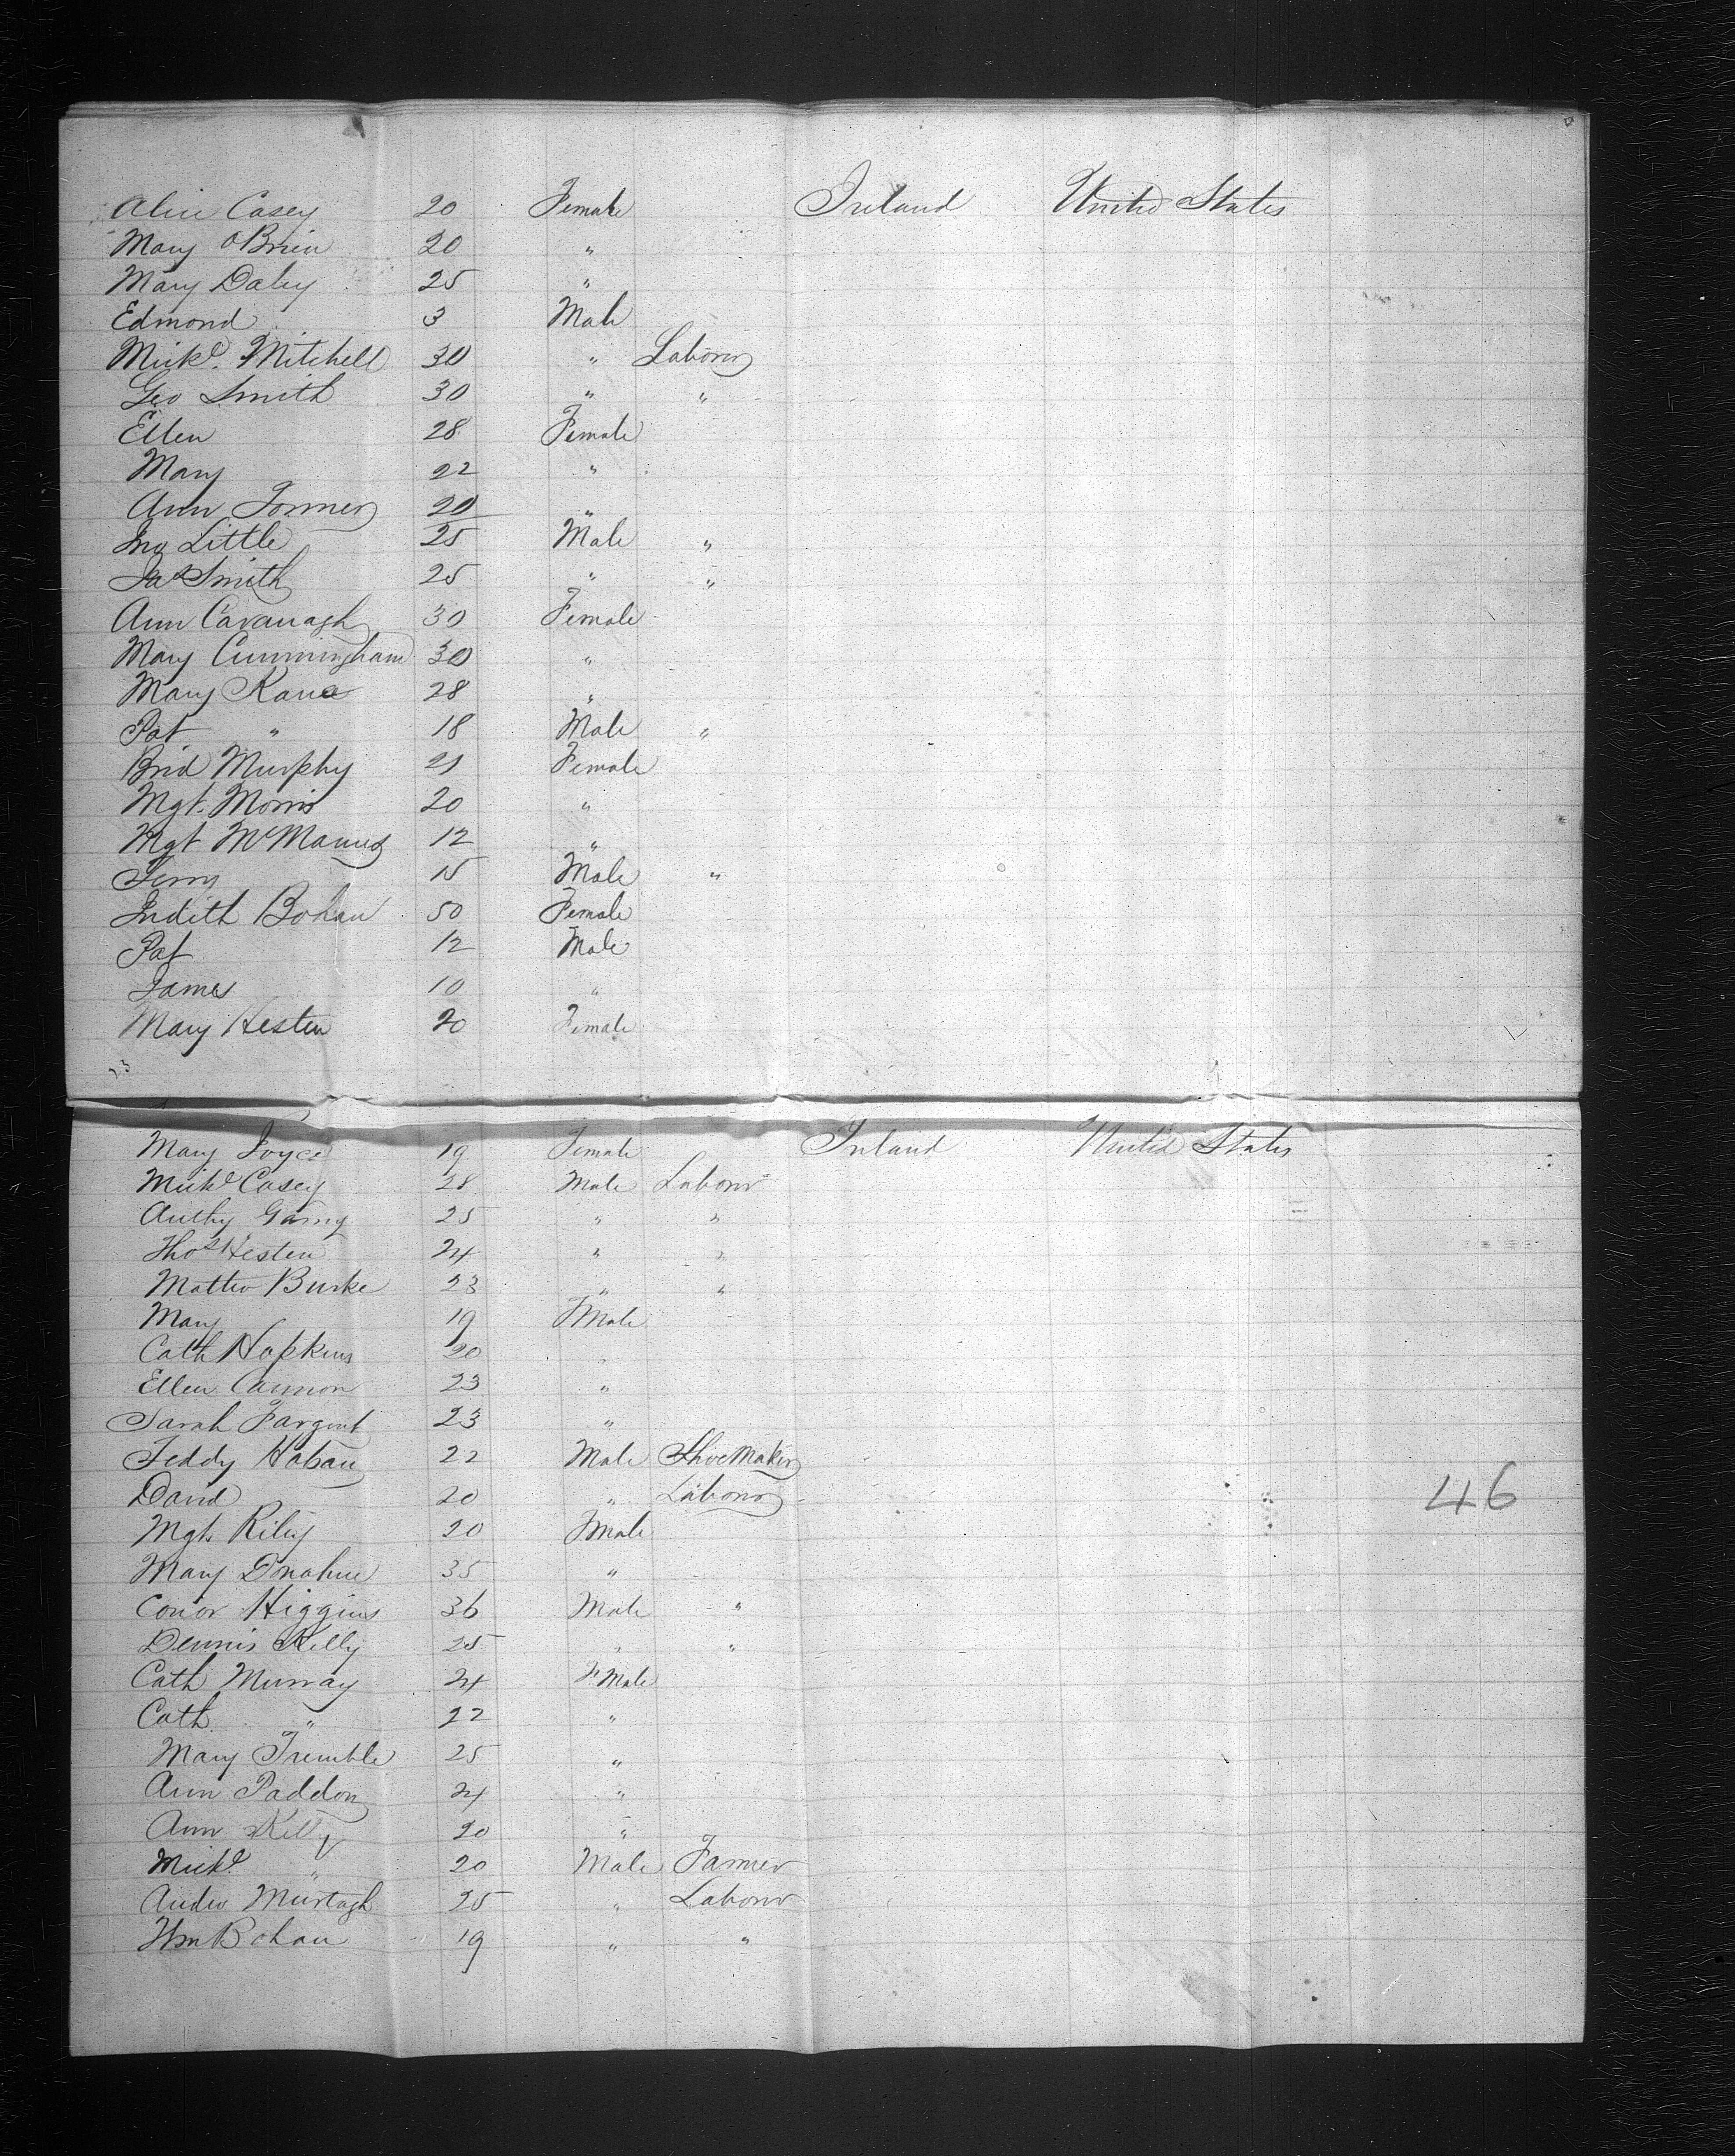 Alice Casey 20 Female Ireland United States
Mary OBrien 20 "
Mary Daley 25 "
Edmond 3 Male
Mickl. Mitchell 30 " Laborer
Geo Smith 30 " "
Ellen 28 Female
Mary 22 "
Ann 20 "
Jno Little 25 Male "
Jas Smith 25 " "
Ann Cavanagh 30 Female
Mary Cunningham 30 "
Mary Kane 28 "
Pat " 18 Male "
Brid Murphy 21 Female
Mgt. Morris 20 "
Mgt McManus 12 "
Terry 15 Male "
Judith Bohan 50 Female
Pat 12 Male
James 10 "
Mary Hester 20 Female
23
Mary Joyce 19 Female Ireland United States
Mickl Casey 28 Male Laborer
Anthy 25 " "
Thos Hester 24 " "
Mattw Burke 23 " "
Mary 19 FMale
Cath Hopkins 20
Ellen Cannon 23 "
Sarah 23 "
Teddy Haban 22 Male ShoeMaker
David 20 " Laborer
Mgt. Riley 20 FMale
Mary Donahue 35 "
Conor Higgins 36 Male "
Dennis Kelly 25 " "
Cath Murray 24 FMale
Cath. " 22 "
Mary Tremble 25 "
Ann Paddon 24 "
Ann Kelly 20 "
Mickl " 20 Male Farmer
Andw Murtagh 25 " Laborer
Wm Bohan 19 " "
46